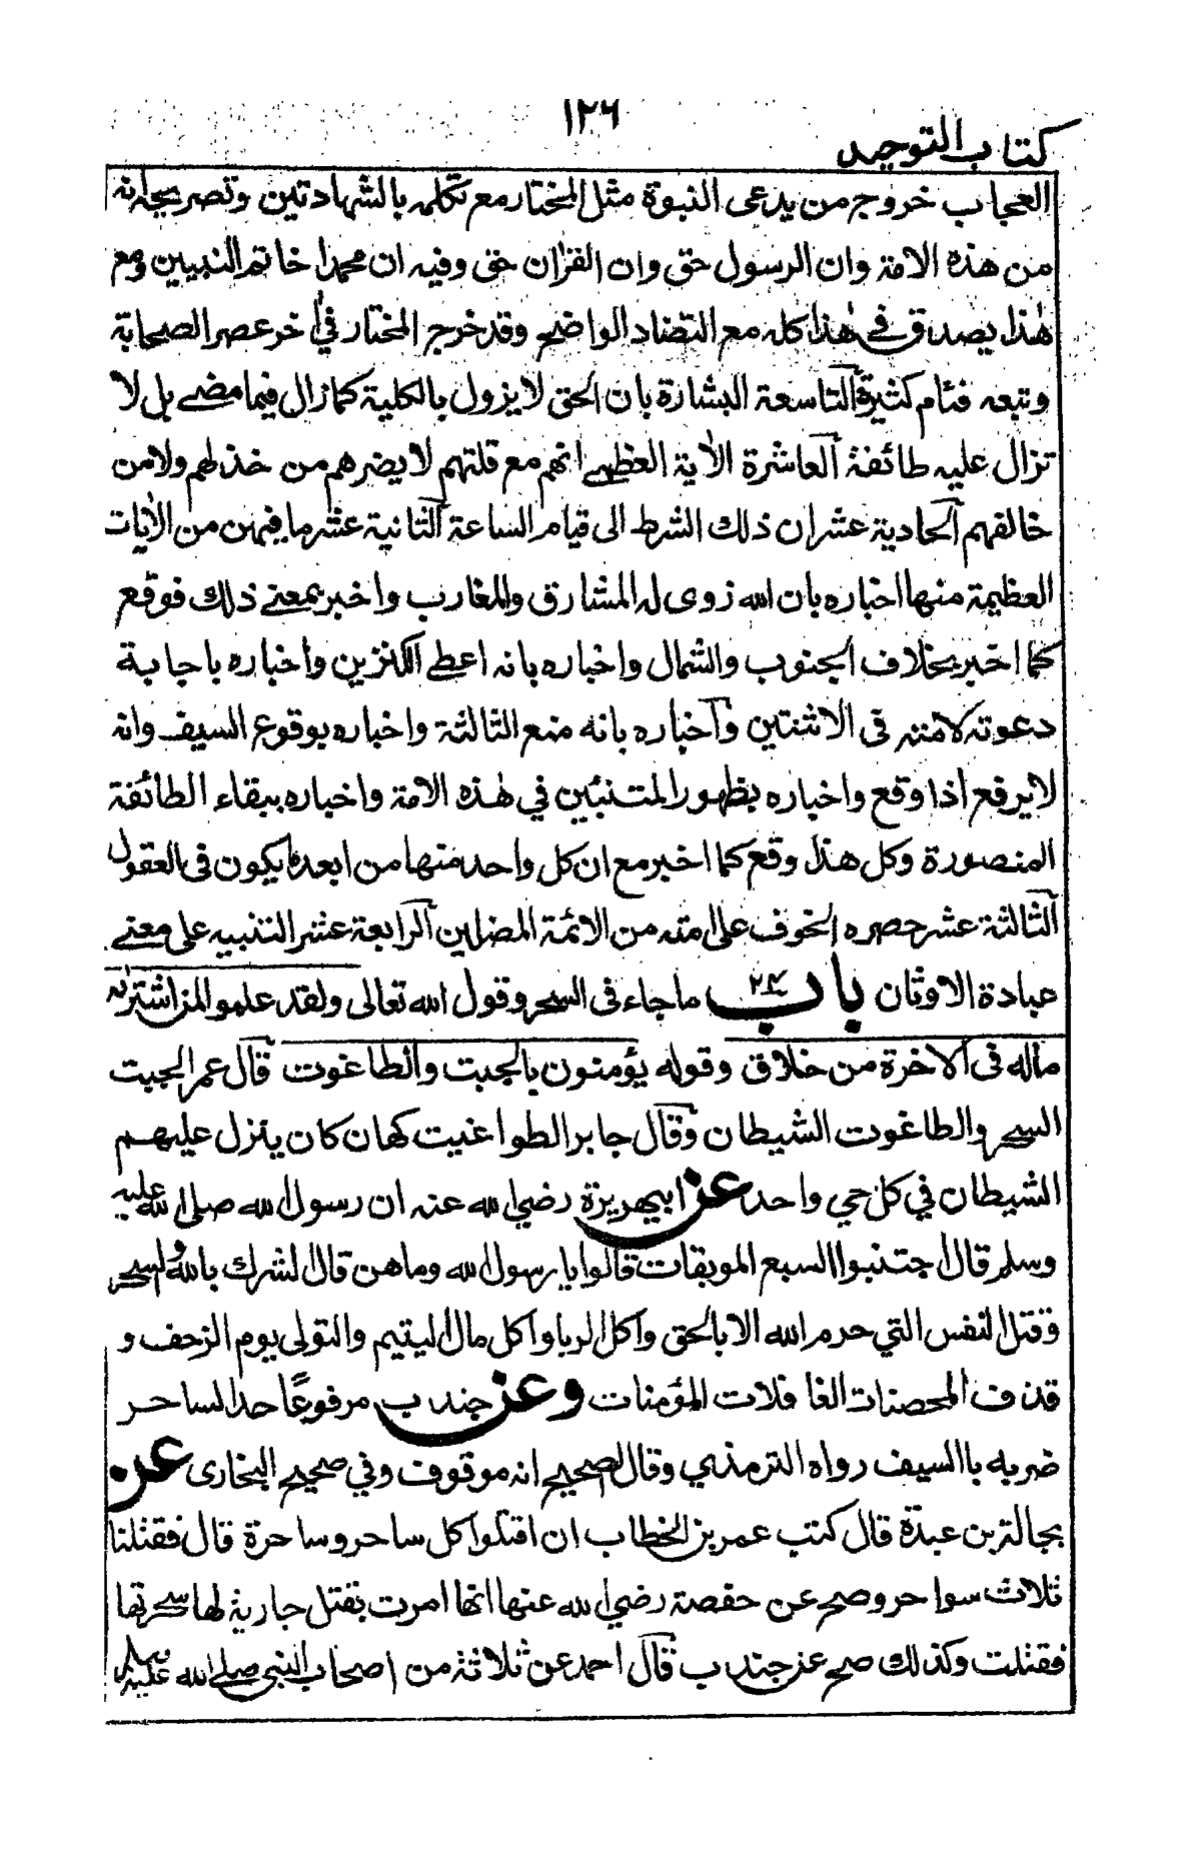 ١٢٦
كتاب التوحيد
العجاب خروج من يدعى النبوة مثل المختار مع تكلمه بالشهادتين وتصريحه انه
من هذه الامة وان الرسول حق وان القرٰان حق وفيه ان محمدا خاتم النبيين ومع
هٰذا يصدق في هٰذا كله مع التضاد الواضح وقد خرج المختار في اٰخر عصر الصحابة
وتبعه فئام كثيرة التاسعة البشارة بان الحق لا يزول بالكلية كما زال فيما مضے بل لا
تزال عليه طائفة العاشرة الاٰية العظمے انهم مع قلتهم لا يضرهم من خذلهم ولا من
خالفهم الحادية عشر ان ذلك الشرط الى قيام الساعة الثانية عشر ما فيهن من الاٰيات
العظيمة منها اخباره بان الله زوى له المشارق والمغارب واخبر بمعنے ذلك فوقع
كما اخبر بخلاف الجنوب والشمال واخباره بانه اعطے الكنزين واخباره باجابة
دعوته لامته فى الاثنتين واخباره بانه منع الثالثة واخباره بوقوع السيف وانه
لا يرفع اذا وقع واخباره بظهور المتنبئين في هٰذه الامة واخباره ببقاء الطائفة
المنصورة وكل هذا وقع كما اخبر مع ان كل واحد منها من ابعد ما يكون فى العقول
الثالثة عشر حصره الخوف على امته من الائمة المضلين الرابعة عشر التنبيه على معنے
عبادة الاوثان باب ٢٤ ماجاء فى السحر وقول الله تعالى ولقد علموا لمن اشتراٰه
ماله فى الاٰخرة من خلاق وقوله يؤمنون بالجبت والطاغوت قال عمر الجبت
السحر والطاغوت الشيطان وقال جابر الطواغيت كهان كان ينزل عليهم
الشيطان في كل حي واحد عن ابيهريرة رضي الله عنه ان رسول الله صلى الله عليه
وسلم قال اجتنبوا السبع الموبقات قالوا يا رسول الله وما هن قال الشرك بالله والسحر
وقتل النفس التي حرم الله الا بالحق واكل الربا واكل مال اليتيم والتولى يوم الزحف و
قذف المحصنات الغافلات المؤمنات وعن جندب مرفوعًا حد الساحر
ضربه باالسيف رواه الترمذي وقال الصحيح انه موقوف وفي صحيح البخارى عن
بجالة بن عبدة قال كتب عمر بن الخطاب ان اقتلوا كل ساحر وساحرة قال فقتلنا
ثلاث سواحر وصح عن حفصة رضي الله عنها انها امرت بقتل جارية لها سحرتها
فقتلت وكذلك صح عن جندب قال احمد عن ثلاثة من اصحاب النبي صلے الله عليه وسلم